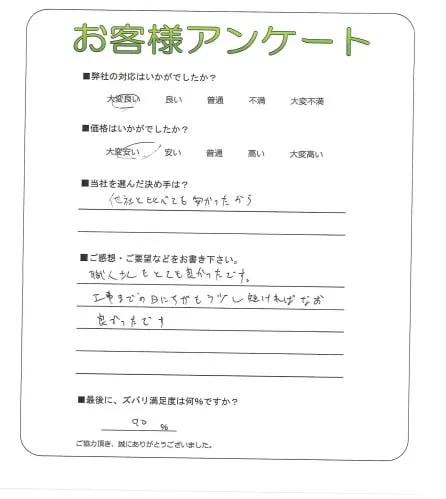 お客様アンケート
■弊社の対応はいかがでしたか?
大変良い 良い 普通 不満 大変不満
■価格はいかがでしたか?
大変安い 安い 普通 高い 大変高い
■当社を選んだ決め手は?
他社と比べても安かったから
■ご感想・ご要望などをお書き下さい。
職人さんもとても良かったです。
工事までの日にちがもう少し短ければなお
良かったです
■最後に、ズバリ満足度は何%ですか?
90 %
ご協力頂き、誠にありがとうございました。